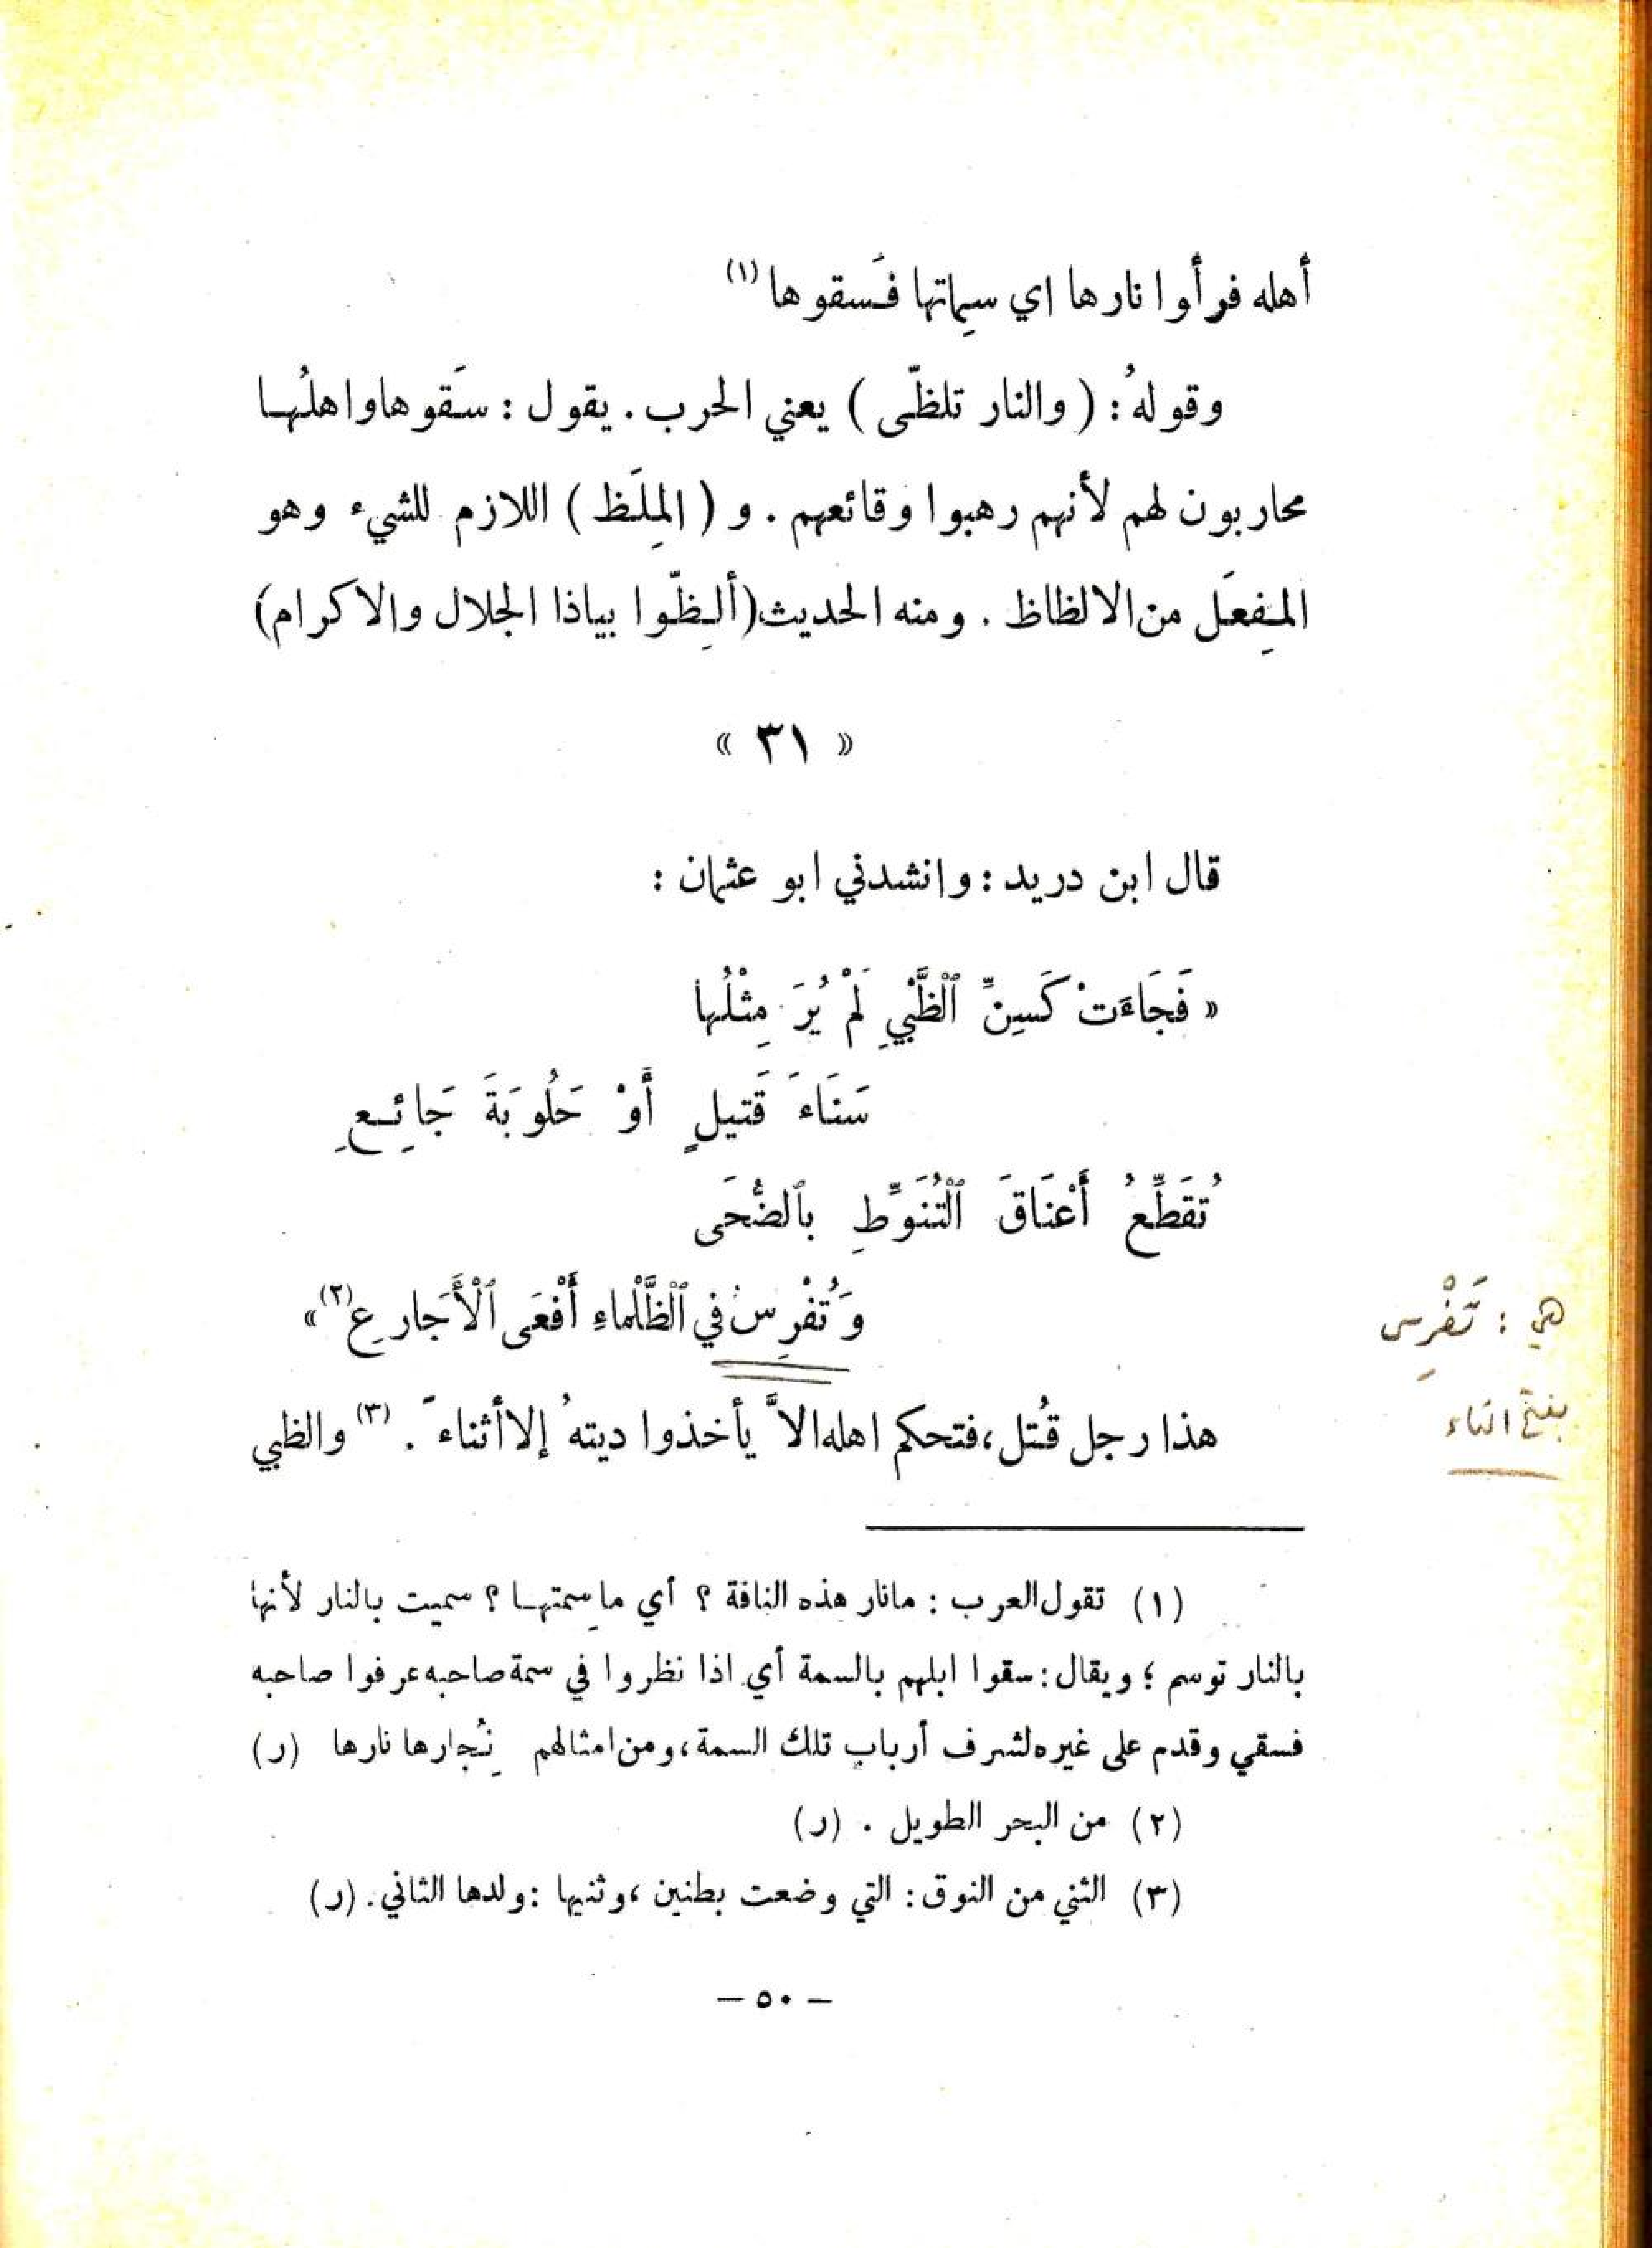 أهله فرأوا نارها اي سِماتها فَسقوها (١)
وقولهُ : ( والنار تلظّى ) يعني الحرب . يقول : سَقوها واهلُها
محاربون لهم لأنهم رهبوا وقائعهم . و ( المِلَظ ) اللازم للشيء وهو
المِفعَل من الالظاظ . ومنه الحديث (ألِظّوا بياذا الجلال والاكرام)
« ٣١ »
قال ابن دريد : وانشدني ابو عثمان :
« فَجَاءَتْ كَسِنِّ ٱلظَّبْيِ لَمْ يُرَ مِثْلُها
سَنَاءَ قَتيلٍ أَوْ حَلُوبَةَ جَائِعِ
تُقَطِّعُ أَعْنَاقَ ٱلْتُنَوِّطِ بٱلضُّحَى
وَتُفْرِسْ في ٱلظَّلْماءِ أَفْعَى ٱلْأَجَارِعِ (٢) »
هي : تَفْرِس
بفتح التاء
هذا رجل قُتل ، فتحكم اهله الاَّ يأخذوا ديتهُ إلا أثناءَ . (٣) والظبي
(١) تقول العرب : مانار هذه النافة ؟ أي ما سِمتها ؟ سميت بالنار لأنها
بالنار توسم ؛ ويقال : سقوا ابلهم بالسمة أي اذا نظروا في سمة صاحبه عرفوا صاحبه
فسقي وقدم على غيره لشرف أرباب تلك السمة ، ومن امثالهم نِجُارها نارها (ر)
(٢) من البحر الطويل . (ر)
(٣) الثني من النوق : التي وضعت بطنين ، وثنيها : ولدها الثاني . (ر)
— ٥٠ —